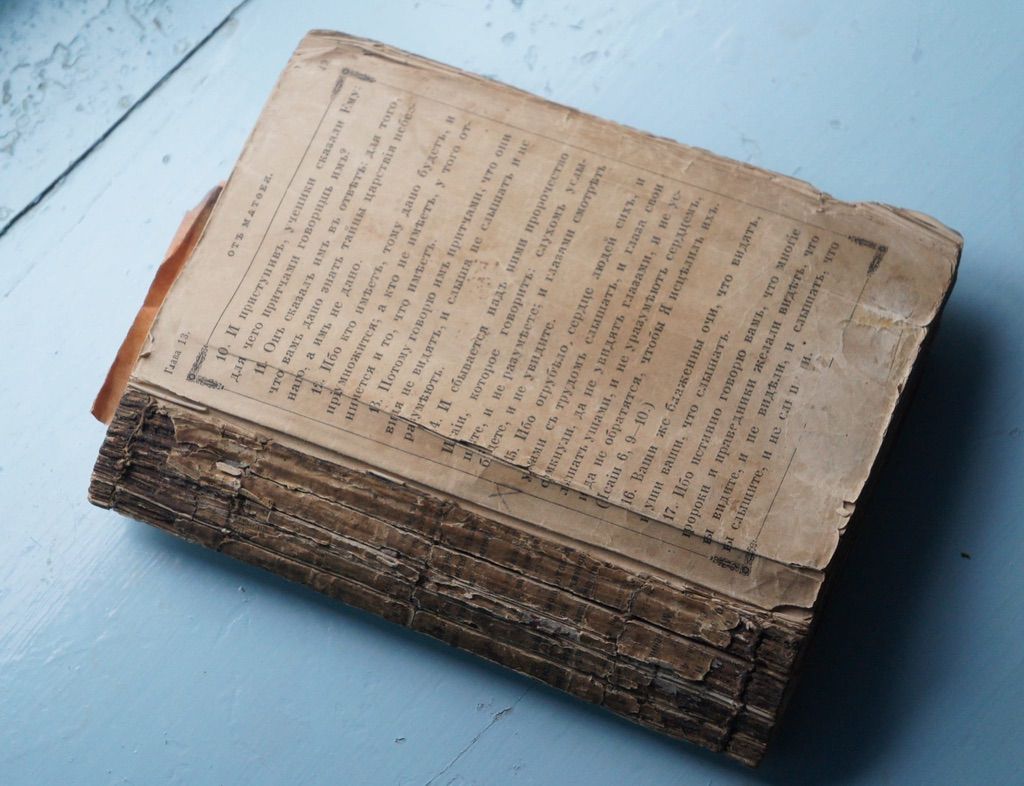 Глава 13.
ОТЪ МАТѲЕЯ.
10. И приступивъ, ученики сказали Ему:
для чего притчами говоришь имъ?
11. Онъ сказалъ имъ въ отвѣтъ: для того,
что вамъ дано знать тайны царствія небес-
наго, а имъ не дано.
12. Ибо кто имѣетъ, тому дано будетъ, и
пріумножится; а кто не имѣетъ, у того от-
нимется и то, что имѣетъ.
13. Потому говорю имъ притчами, что они
видя не видятъ, и слыша не слышатъ и не
разумѣютъ.
И сбывается надъ ними пророчество
которое говоритъ: слухомъ услы-
и не уразумѣете; и глазами смотрѣть
будете, и не увидите.
15. Ибо огрубѣло сердце людей сихъ, и
ушами съ трудомъ слышатъ, и глаза свои
сомкнули, да не увидятъ глазами, и не ус-
лышатъ ушами, и не уразумѣютъ сердцемъ,
и да не обратятся, чтобы Я исцѣлилъ ихъ.
(Исаіи 6, 9–10.)
16. Ваши же блаженны очи, что видятъ,
и уши ваши, что слышатъ.
17. Ибо истинно говорю вамъ, что многіе
пророки и праведники желали видѣть, что
вы видите, и не видѣли, и слышать, что
вы слышите, и не